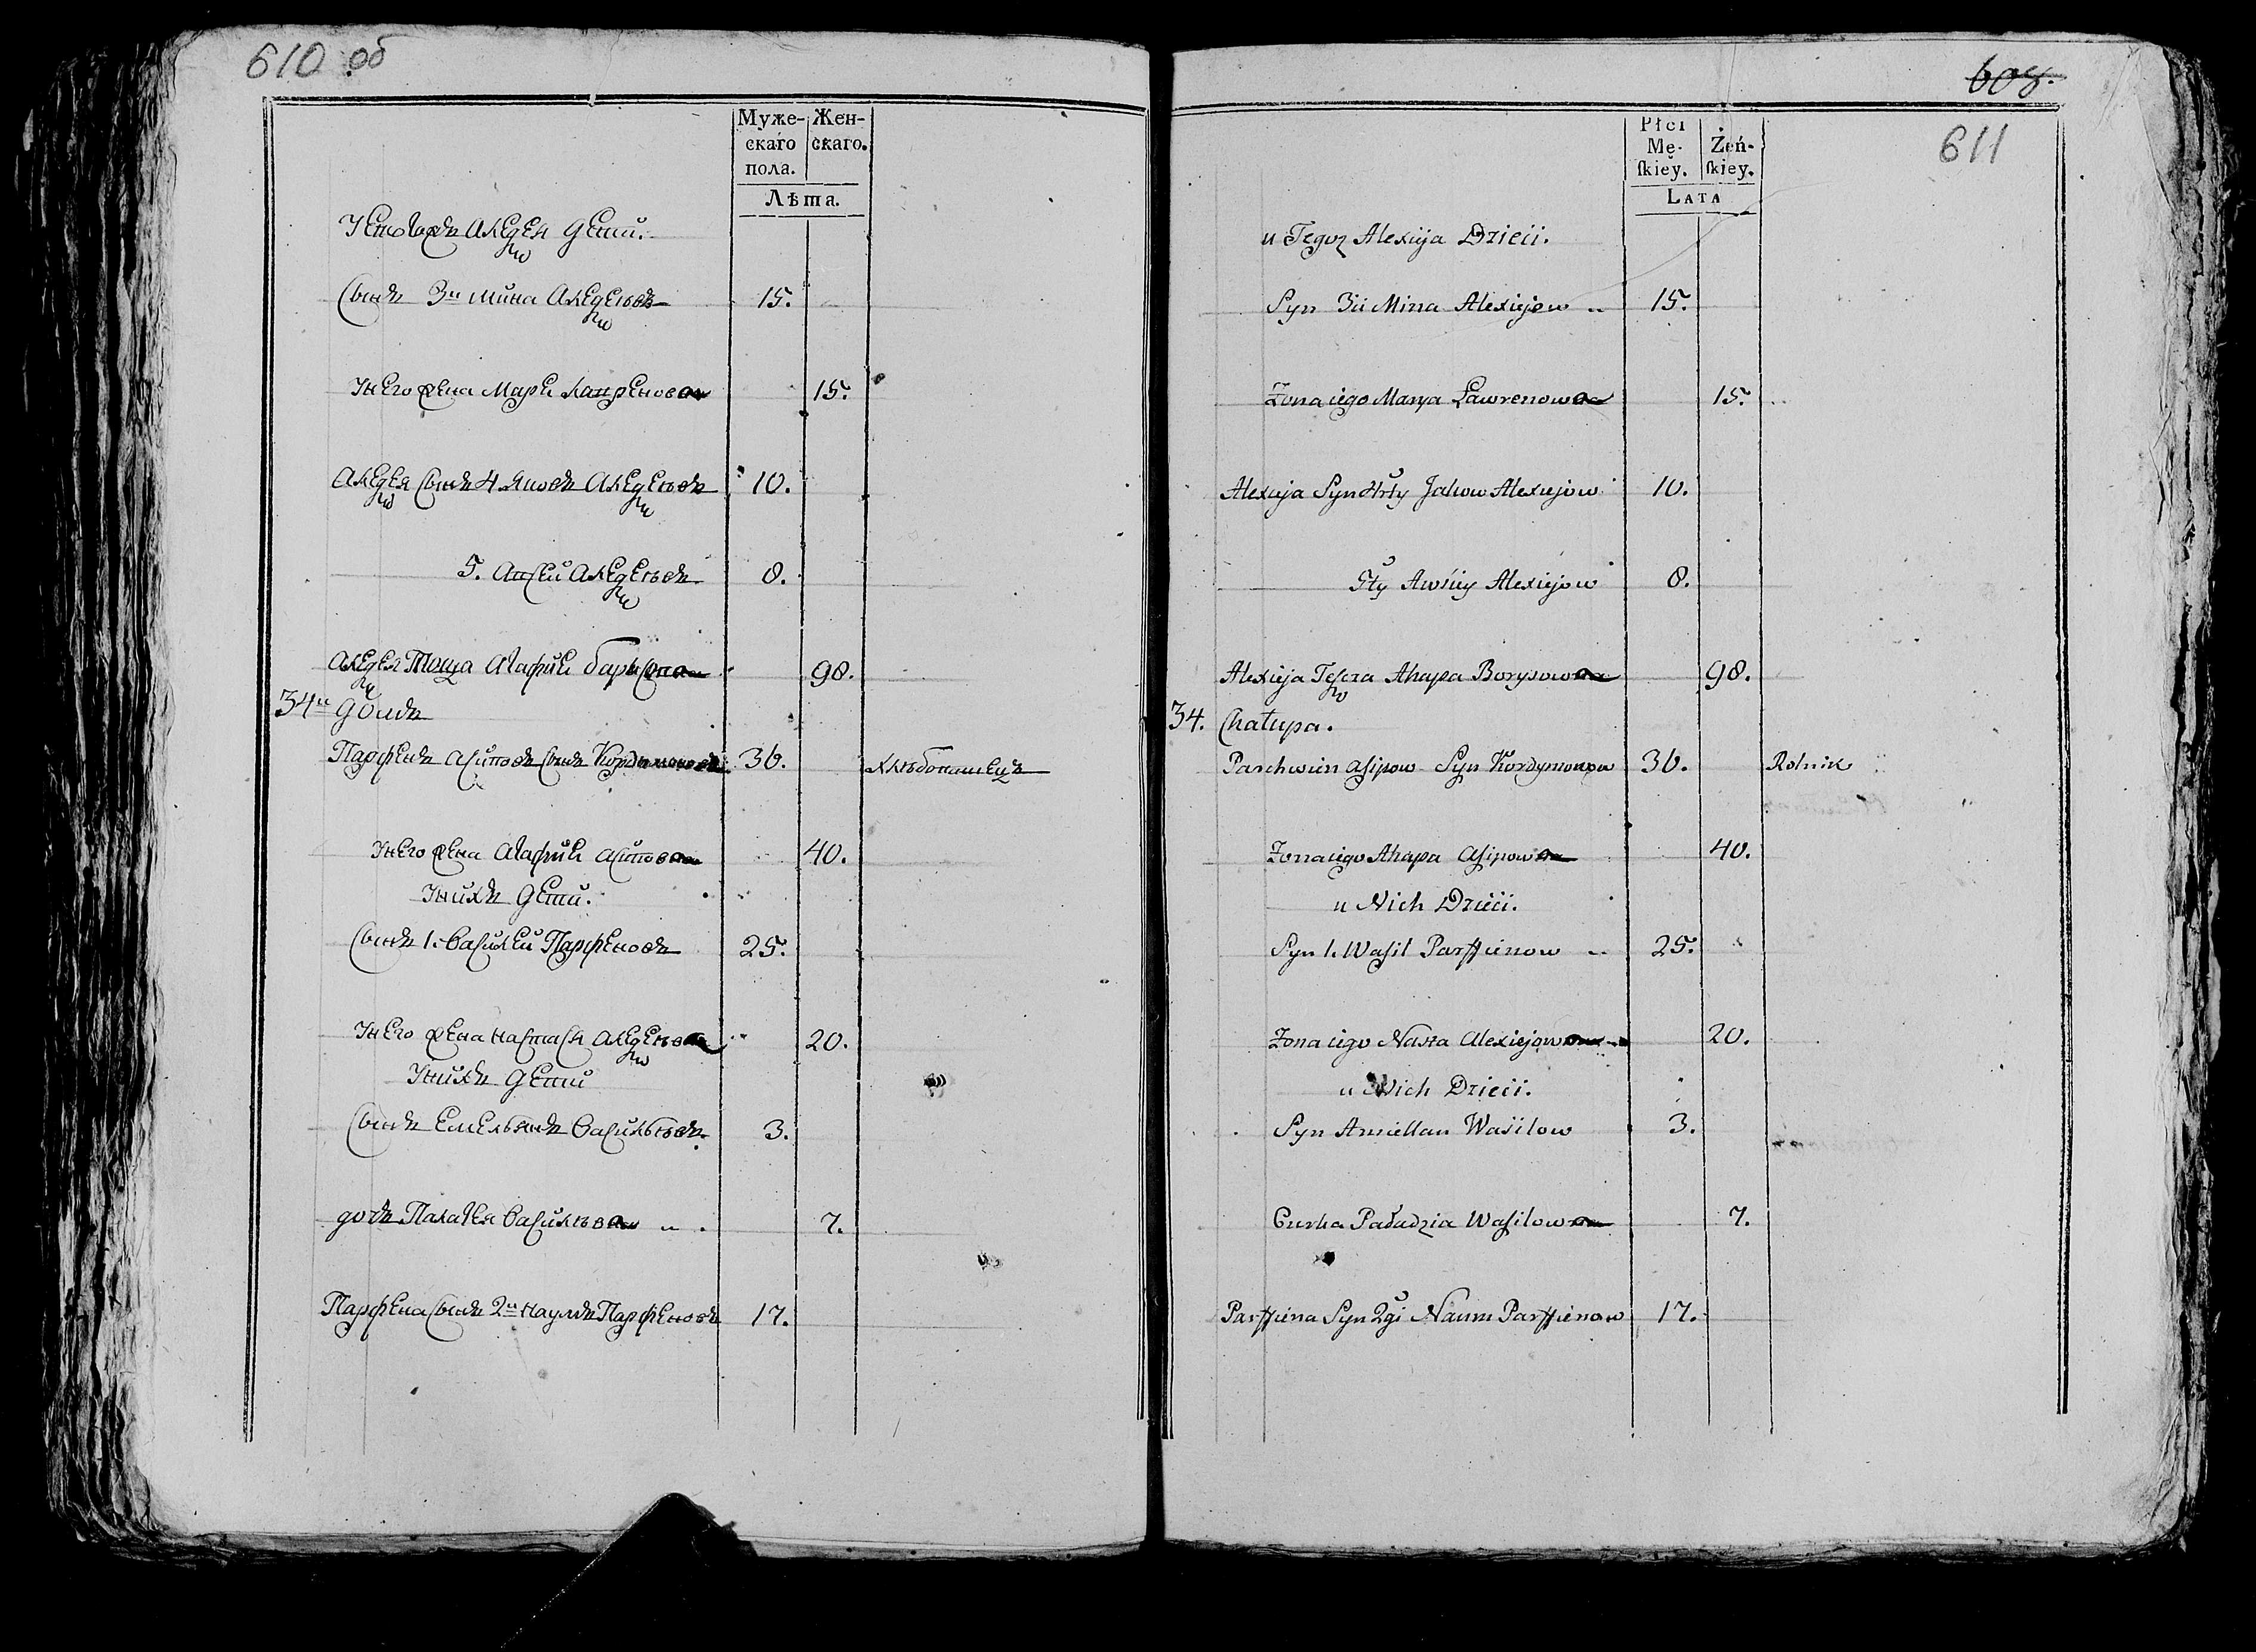 610 об
Муже- Жен-
скаго скаго.
пола.
Лѣта.
Утогожъ Алеѯея дети.
Сынъ 3й Мина Алеѯеевъ 15.
Унего жена Маря Лавренова 15.
Алеѯея сынъ 4 Яковъ Алеѯеевъ 10.
5. Авсей Алеѯеевъ 8.
Алеѯея Теща Агафия Барысова 98.
34й домъ
Парфенъ Асиповъ сынъ 36. хлебопашецъ
Унего жена Агафия Асипова 40.
Унихъ дети.
Сынъ 1. Василей Парфеновъ 25.
Унего жена Настася Алеѯеева 20.
Унихъ дети
Сынъ Емельянъ Васильевъ 3.
дочь Палагея Васильева 7.
Парфена сынъ 2й Наумъ Парфеновъ 17.
608.
611
Płci
Mę- Żeń-
ſkiey. ſkiey.
LATA
u Tegoz Alexieja Dzieci.
Syn 3ci Mina Alexiejow 15.
Żona iego Marya Ławrenowa 15.
Alexieja Syn 4rty Jakow Alexiejow 10.
5ty Awsiey Alexiejow 8.
Alexieja Teſcza Ahapa Borysowa 98.
34. Chałupa.
Parchwien Aſipow Syn Kordymonow 36. Rolnik
Żona iego Ahapa Aſipowa 40.
u Nich Dzieci.
Syn 1. Waſil Parffienow 25.
Żona iego Nasta Alexiejowa 20.
u Nich Dzieci.
Syn Amiellan Wasilow 3.
Curka Paładzia Waſilowa 7.
Parffiena Syn 2gi Naum Parffienow 17.